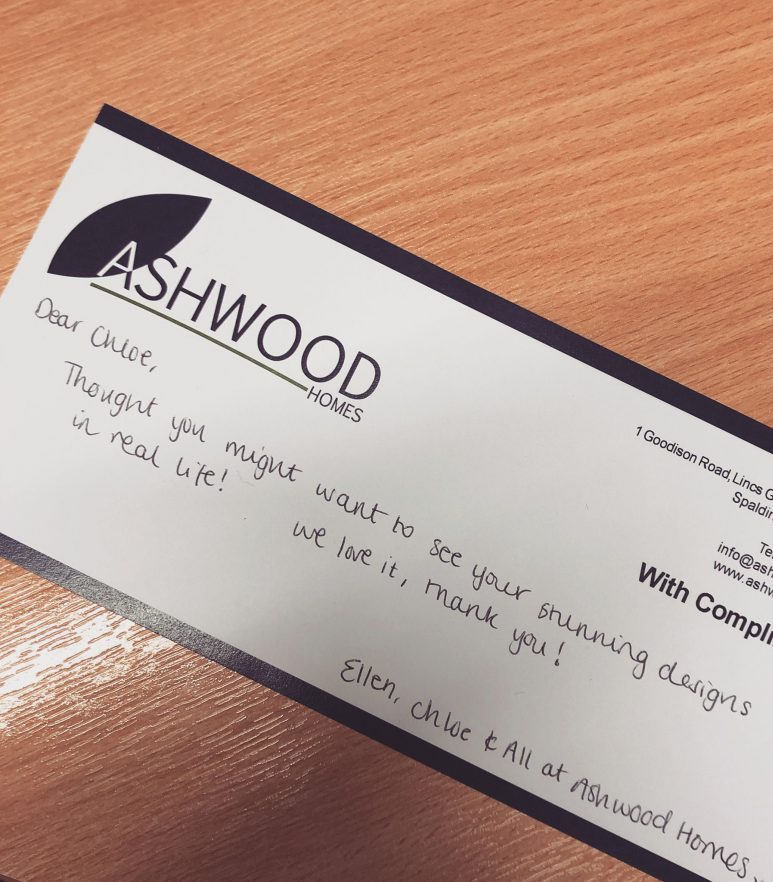 ASHWOOD
HOMES
Dear Chloe,
Thought you might want to see your stunning designs
in real life!
we love it, thank you!
Ellen, Chloe & All at Ashwood Homes
1 Goodison Road, Lincs G
Spaldin
Te
info@ash
www.ashw
With Compli